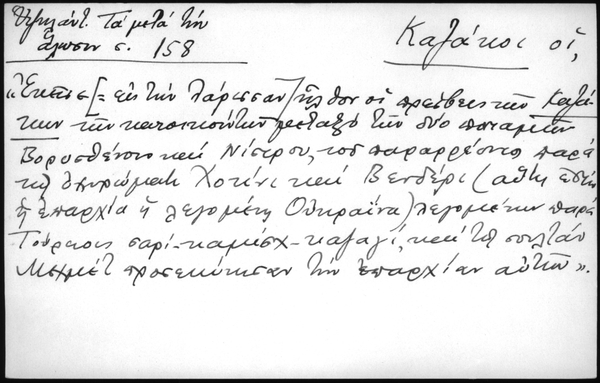 Ὑψηλάντ. Τὰ μετὰ τὴν
ἅλωσιν σ. 158
Καζάκοι οἱ,
«Ἐκεῖσε [= εἰς τὴν Λάρισσαν] ἦλθον οἱ πρέσβεις τῶν Καζά-
κων τῶν κατοικούντων μεταξὺ τῶν δύο ποταμῶν
Βορυσθένους καὶ Νίστρου, τοῦ παραρρέοντος παρὰ
τὰ ὀχυρώματα Χοτίνι καὶ Βενδέρι (αὕτη ἐστὶν
ἡ ἐπαρχία ἡ λεγομένη Οὐκραΐνα) λεγομένων παρὰ
Τούρκοις σαρί-καμίσχ-καζαγί, καὶ τῷ σουλτὰν
Μεχμὲτ προσεκύνησαν τὴν ἐπαρχίαν αὐτῶν».